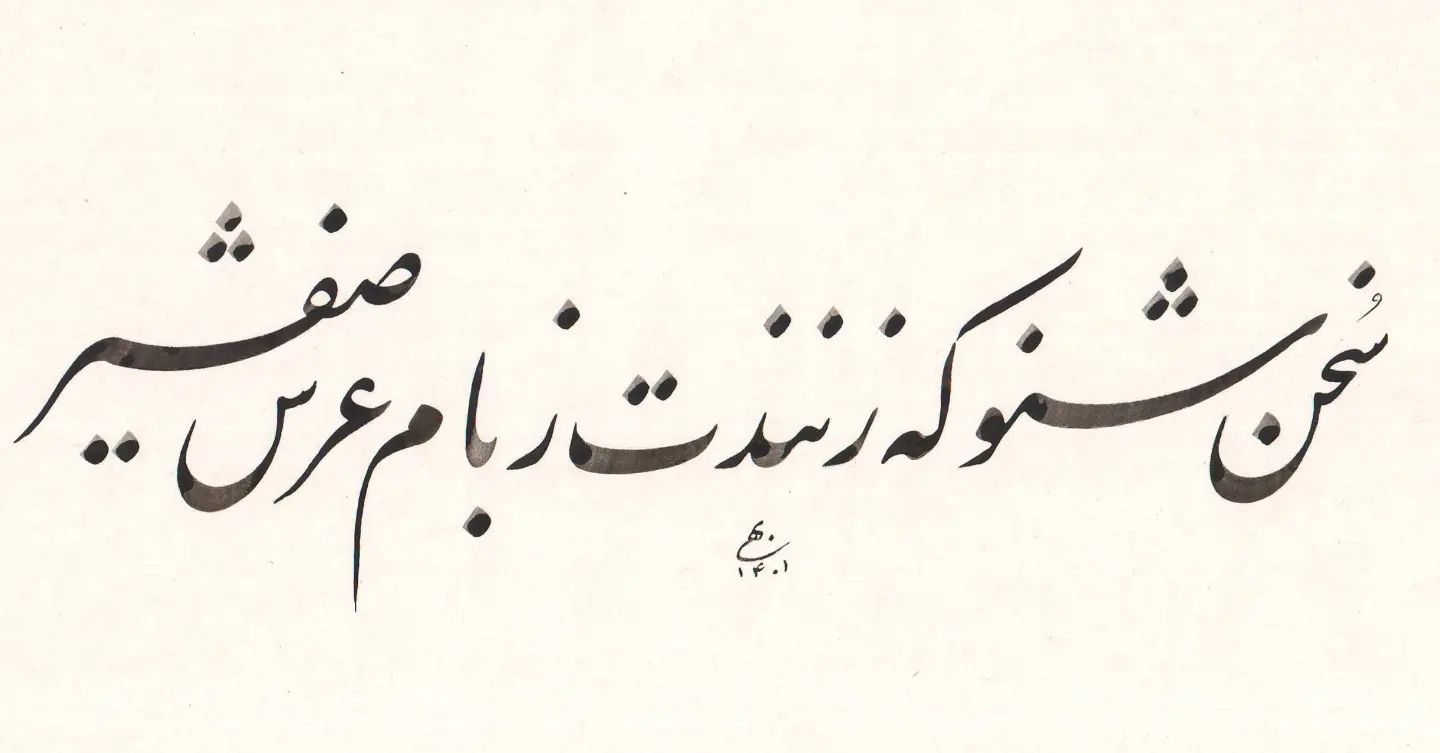 سُخن شنو که زنندت ز بام عرش صفیر
۱۴۰۱